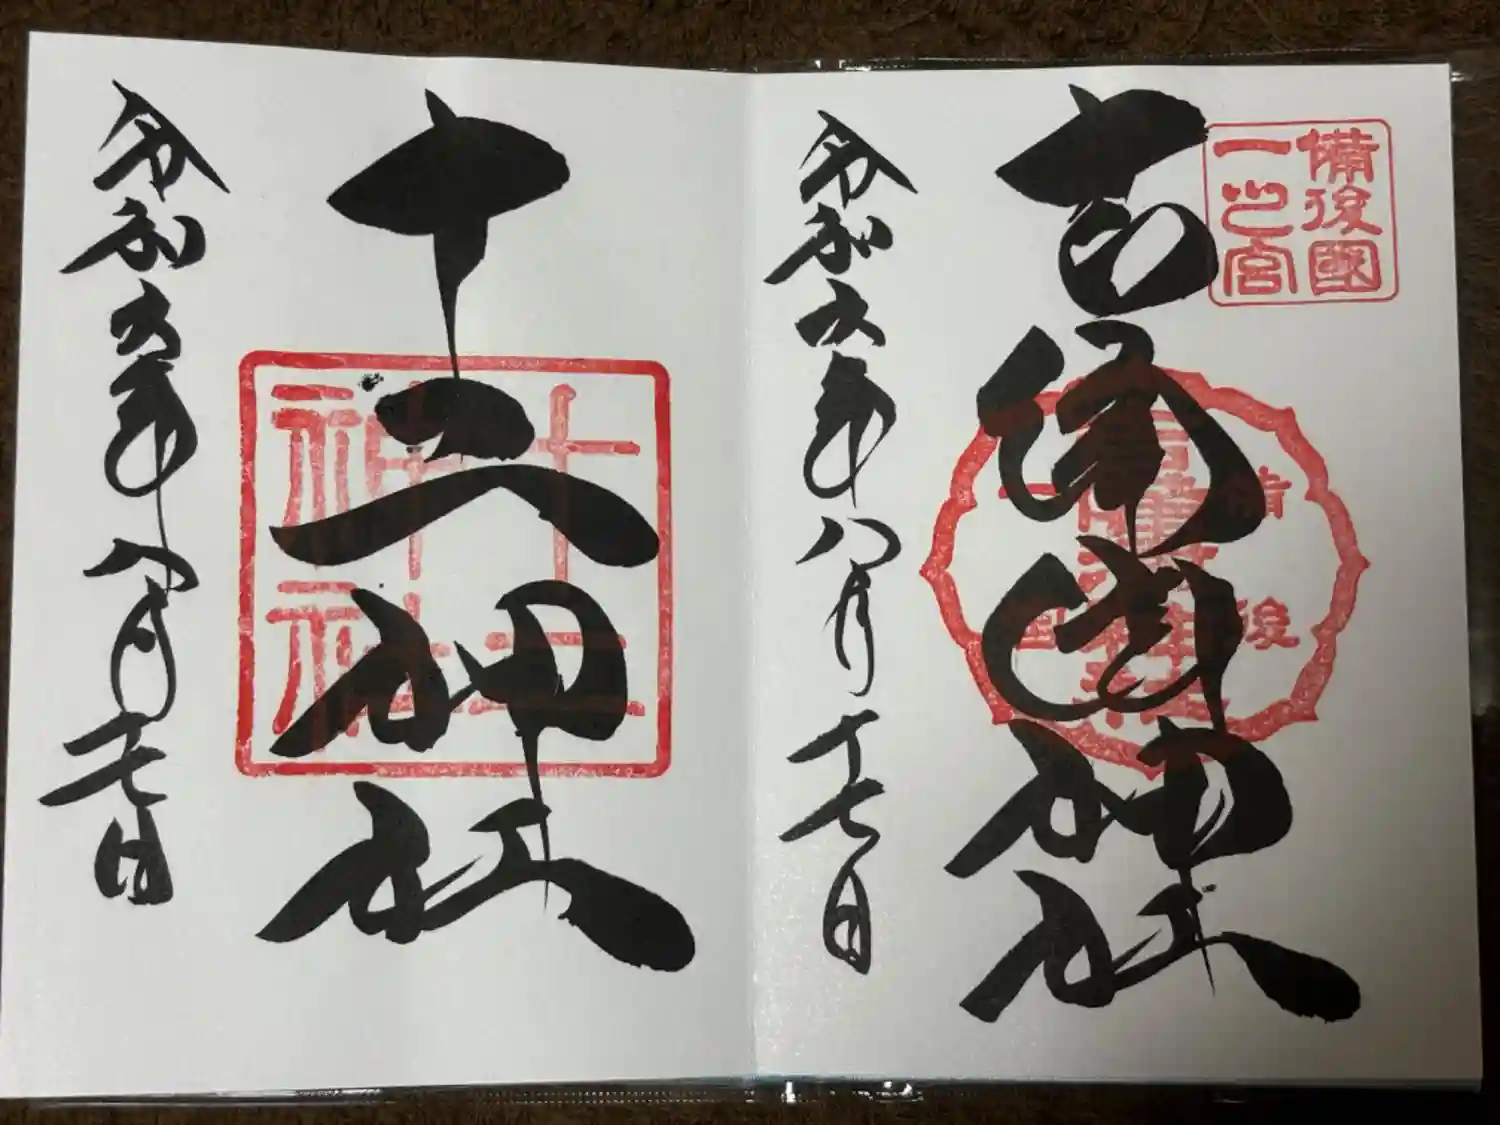 備後國
一之宮
吉備津神社
備後
一
国
吉備津神社
令和六年八月十七日
十二神社
十二
神社
令和六年八月十七日